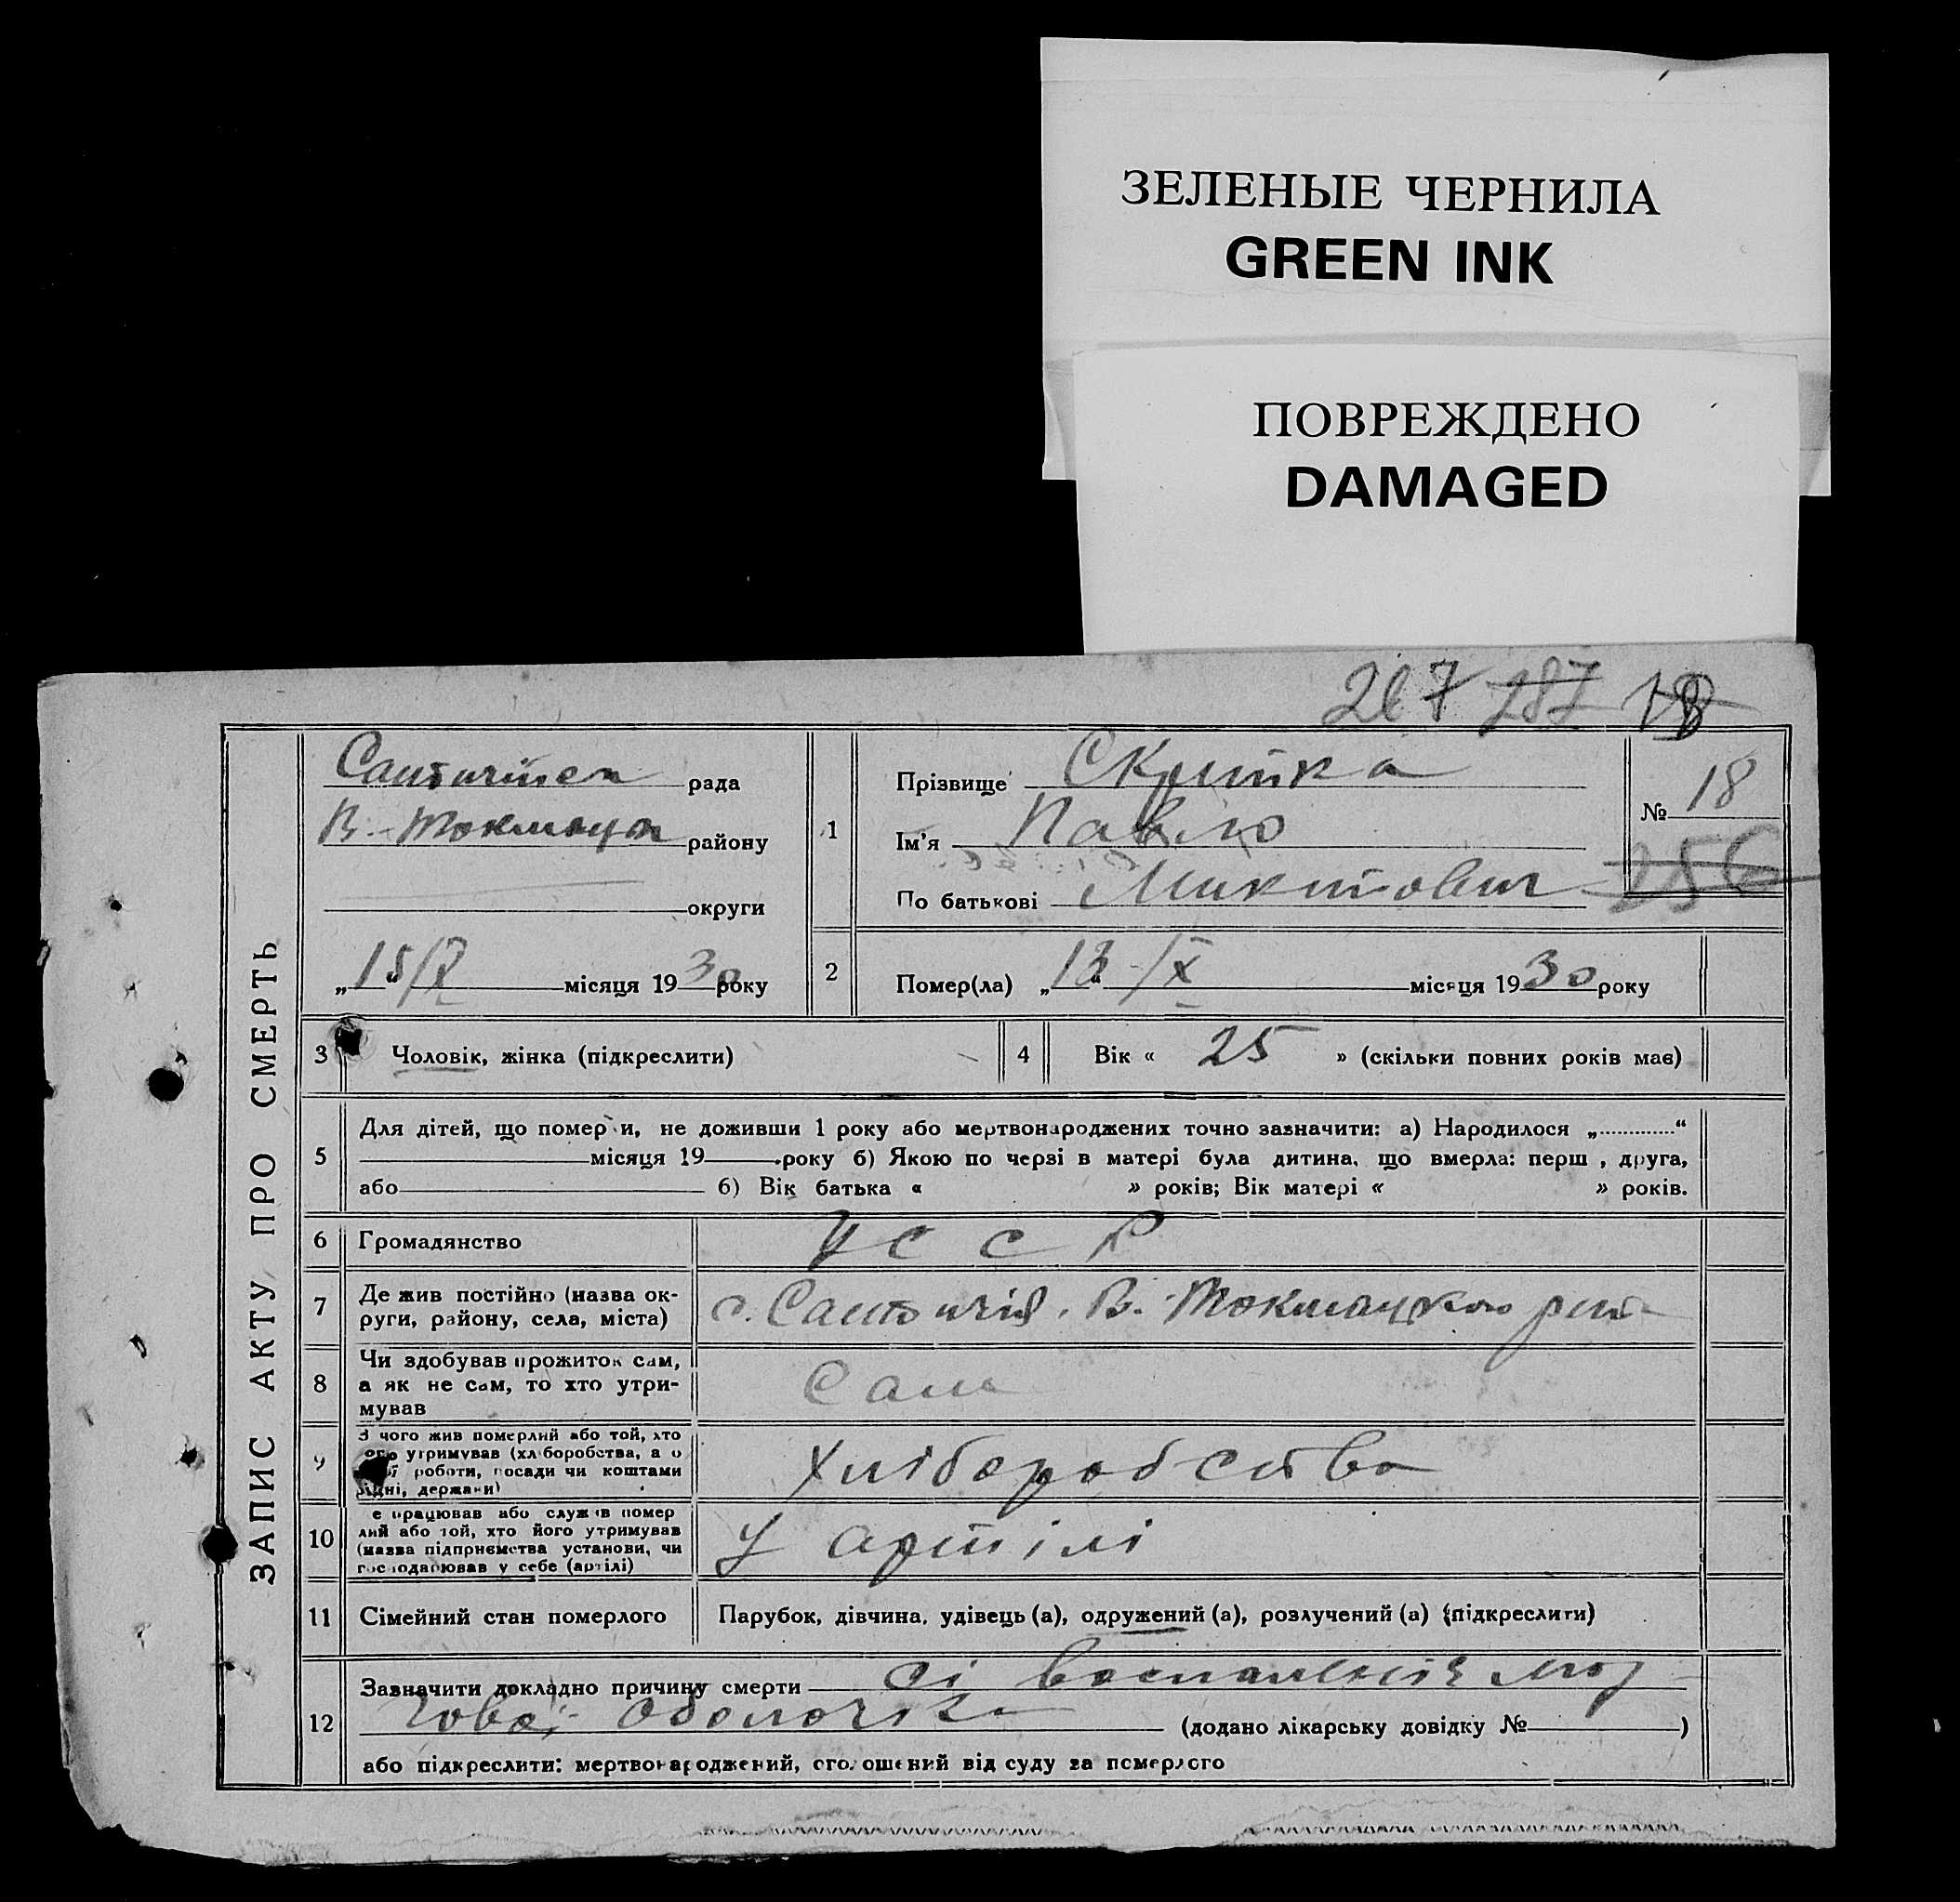 ЗЕЛЕНЫЕ ЧЕРНИЛА
GREEN INK
ПОВРЕЖДЕНО
DAMAGED
267 287 18
ЗАПИС АКТУ ПРО СМЕРТЬ
рада
В.-Токмацк району
округи
„15“/IX місяця 1930 року
1
Прізвище Скрипка
Ім'я Павло
По батькові Микитович
№ 18
256
2
Помер(ла) „13“ /IX місяця 1930 року
3 Чоловік, жінка (підкреслити)
4 Вік « 25 » (скільки повних років має)
5 Для дітей, що померли, не доживши 1 року або мертвонароджених точно зазначити: а) Народилося „ “
місяця 19 року б) Якою по черзі в матері була дитина, що вмерла: перш , друга,
або б) Вік батька « » років; Вік матері « » років.
6 Громадянство УССР
7 Де жив постійно (назва ок-
руги, району, села, міста) с. В.-Токмацкого
8 Чи здобував прожиток сам,
а як не сам, то хто утри-
мував Сам
9 З чого жив померлий або той, хто
його утримував (хліборобства, а о
роботи, посади чи коштами
рідні, держави) Хліборобство
10 е працював або служив помер
лий або той, хто його утримував
(назва підприємства установи, чи
господарював у себе (артілі) У артілі
11 Сімейний стан померлого Парубок, дівчина, удівець (а), одружений (а), розлучений (а) (підкреслити)
12 Зазначити докладно причину смерти
оболочки (додано лікарську довідку № )
або підкреслити: мертвонароджений, оголошений від суду за померлого